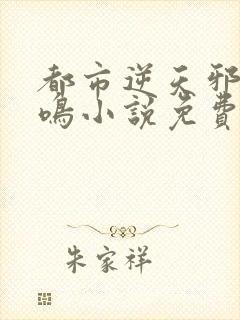 都市逆天邪
鳴小說免費
朱家祥